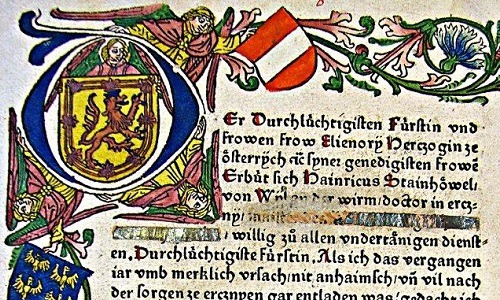 DEr Durchlüchtigisten Fürstin vnd
Frowen frow Elienory Herczogin ze
österrych etc̄ syner genedigisten frowē
Erbüt sich Hainricus Stainhöwel
von Wyl an der wirm doctor in ercz-
ny/
/ willig zů allen vndertänigen dienst-
en, Durchlüchtigiste Fürstin, Als ich das vergangen
iar vmb merklich vrsach/nit anhaimsch/vn̄ vil nach
der sorgen ze erczneyen gar entladen was/